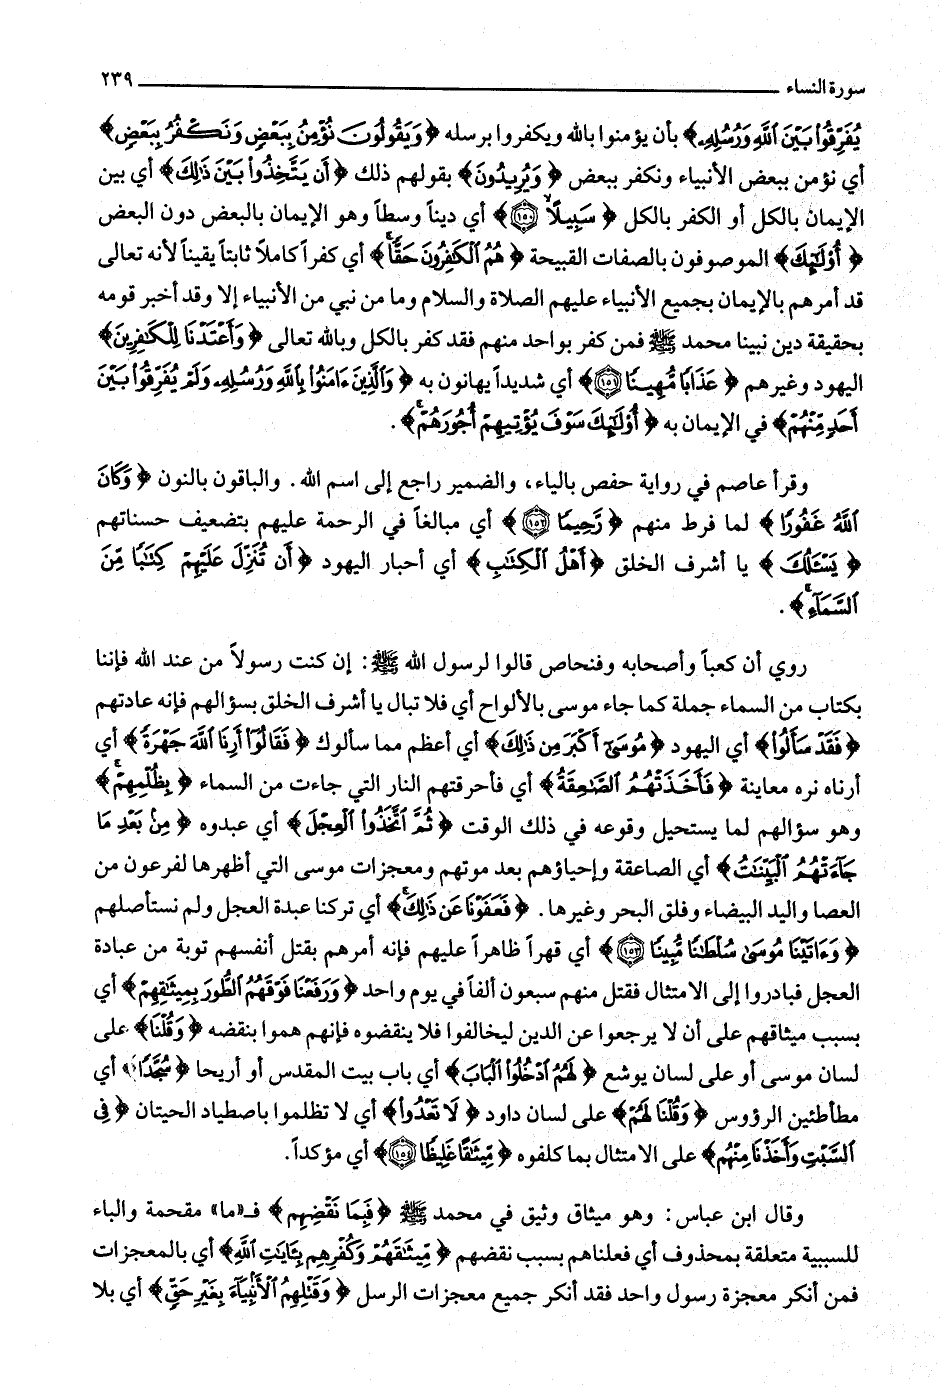 سورة النساء ٢٣٩
يُفَرِّقُوا۟ بَيْنَ ٱللَّهِ وَرُسُلِهِۦ﴾ بأن يؤمنوا بالله ويكفروا برسله ﴿وَيَقُولُونَ نُؤْمِنُ بِبَعْضٍ وَنَكْفُرُ بِبَعْضٍ﴾
أي نؤمن ببعض الأنبياء ونكفر ببعض ﴿وَيُرِيدُونَ﴾ بقولهم ذلك ﴿أَن يَتَّخِذُوا۟ بَيْنَ ذَٰلِكَ﴾ أي بين
الإيمان بالكل أو الكفر بالكل ﴿سَبِيلًا ۝١٥٠﴾ أي ديناً وسطاً وهو الإيمان بالبعض دون البعض
﴿أُو۟لَٰٓئِكَ﴾ الموصوفون بالصفات القبيحة ﴿هُمُ ٱلْكَٰفِرُونَ حَقًّا ۚ﴾ أي كفراً كاملاً ثابتاً يقيناً لأنه تعالى
قد أمرهم بالإيمان بجميع الأنبياء عليهم الصلاة والسلام وما من نبي من الأنبياء إلا وقد أخبر قومه
بحقيقة دين نبينا محمد ﷺ فمن كفر بواحد منهم فقد كفر بالكل وبالله تعالى ﴿وَأَعْتَدْنَا لِلْكَٰفِرِينَ﴾
اليهود وغيرهم ﴿عَذَابًا مُّهِينًا ۝١٥١﴾ أي شديداً يهانون به ﴿وَٱلَّذِينَ ءَامَنُوا۟ بِٱللَّهِ وَرُسُلِهِۦ وَلَمْ يُفَرِّقُوا۟ بَيْنَ
أَحَدٍ مِّنْهُمْ﴾ في الإيمان به ﴿أُو۟لَٰٓئِكَ سَوْفَ يُؤْتِيهِمْ أُجُورَهُمْ ۚ﴾.
وقرأ عاصم في رواية حفص بالياء، والضمير راجع إلى اسم الله. والباقون بالنون ﴿وَكَانَ
ٱللَّهُ غَفُورًا﴾ لما فرط منهم ﴿رَّحِيمًا ۝١٥٢﴾ أي مبالغاً في الرحمة عليهم بتضعيف حسناتهم
﴿يَسْـَٔلُكَ﴾ يا أشرف الخلق ﴿أَهْلُ ٱلْكِتَٰبِ﴾ أي أحبار اليهود ﴿أَن تُنَزِّلَ عَلَيْهِمْ كِتَٰبًا مِّنَ
ٱلسَّمَآءِ ۚ﴾.
روي أن كعباً وأصحابه وفنحاص قالوا لرسول الله ﷺ: إن كنت رسولاً من عند الله فإننا
بكتاب من السماء جملة كما جاء موسى بالألواح أي فلا تبال يا أشرف الخلق بسؤالهم فإنه عادتهم
﴿فَقَدْ سَأَلُوا۟﴾ أي اليهود ﴿مُوسَىٰٓ أَكْبَرَ مِن ذَٰلِكَ﴾ أي أعظم مما سألوك ﴿فَقَالُوٓا۟ أَرِنَا ٱللَّهَ جَهْرَةً﴾ أي
أرناه نره معاينة ﴿فَأَخَذَتْهُمُ ٱلصَّٰعِقَةُ﴾ أي فأحرقتهم النار التي جاءت من السماء ﴿بِظُلْمِهِمْ ۚ﴾
وهو سؤالهم لما يستحيل وقوعه في ذلك الوقت ﴿ثُمَّ ٱتَّخَذُوا۟ ٱلْعِجْلَ﴾ أي عبدوه ﴿مِنۢ بَعْدِ مَا
جَآءَتْهُمُ ٱلْبَيِّنَٰتُ﴾ أي الصاعقة وإحياؤهم بعد موتهم ومعجزات موسى التي أظهرها لفرعون من
العصا واليد البيضاء وفلق البحر وغيرها. ﴿فَعَفَوْنَا عَن ذَٰلِكَ ۚ﴾ أي تركنا عبدة العجل ولم نستأصلهم
﴿وَءَاتَيْنَا مُوسَىٰ سُلْطَٰنًا مُّبِينًا ۝١٥٣﴾ أي قهراً ظاهراً عليهم فإنه أمرهم بقتل أنفسهم توبة من عبادة
العجل فبادروا إلى الامتثال فقتل منهم سبعون ألفاً في يوم واحد ﴿وَرَفَعْنَا فَوْقَهُمُ ٱلطُّورَ بِمِيثَٰقِهِمْ﴾ أي
بسبب ميثاقهم على أن لا يرجعوا عن الدين ليخالفوا فلا ينقضوه فإنهم هموا بنقضه ﴿وَقُلْنَا﴾ على
لسان موسى أو على لسان يوشع ﴿لَهُمُ ٱدْخُلُوا۟ ٱلْبَابَ﴾ أي باب بيت المقدس أو أريحا ﴿سُجَّدًا﴾ أي
مطأطئين الرؤوس ﴿وَقُلْنَا لَهُمْ﴾ على لسان داود ﴿لَا تَعْدُوا۟﴾ أي لا تظلموا باصطياد الحيتان ﴿فِى
ٱلسَّبْتِ وَأَخَذْنَا مِنْهُم﴾ على الامتثال بما كلفوه ﴿مِّيثَٰقًا غَلِيظًا ۝١٥٤﴾ أي مؤكداً.
وقال ابن عباس: وهو ميثاق وثيق في محمد ﷺ ﴿فَبِمَا نَقْضِهِم﴾ فـ«ما» مقحمة والباء
للسببية متعلقة بمحذوف أي فعلناهم بسبب نقضهم ﴿مِّيثَٰقَهُمْ وَكُفْرِهِم بِـَٔايَٰتِ ٱللَّهِ﴾ أي بالمعجزات
فمن أنكر معجزة رسول واحد فقد أنكر جميع معجزات الرسل ﴿وَقَتْلِهِمُ ٱلْأَنۢبِيَآءَ بِغَيْرِ حَقٍّ﴾ أي بلا